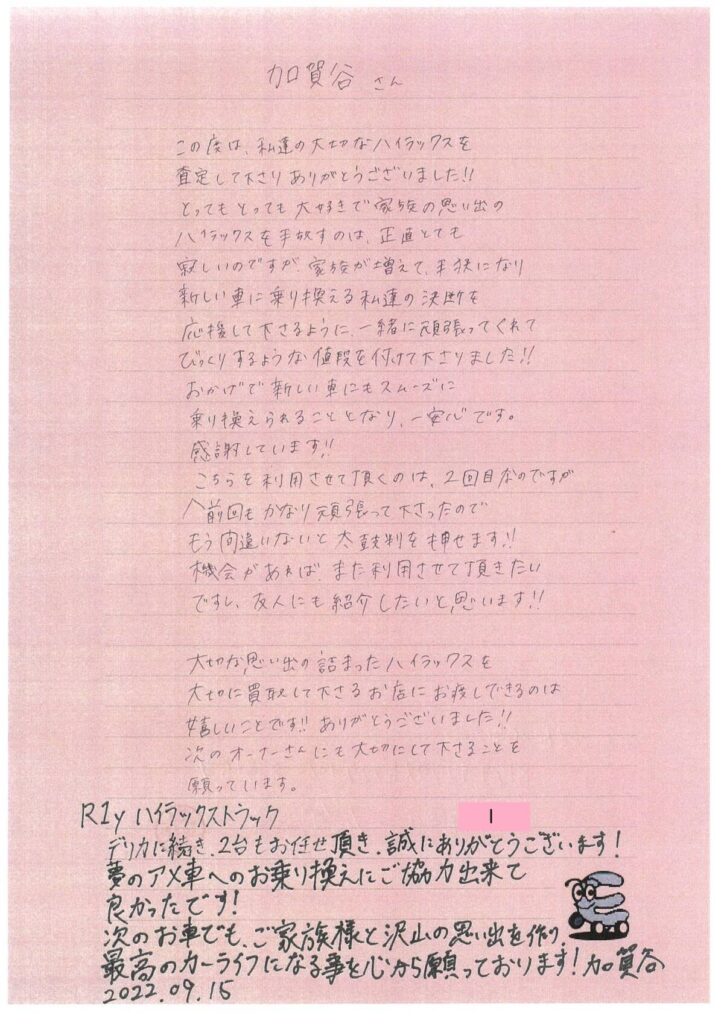 加賀谷 さん
この度は、私達の大切なハイラックスを
査定して下さりありがとうございました!!
とってもとっても大好きで家族の思い出の
ハイラックスを手放すのは、正直とても
寂しいのですが、家族が増えて、手狭になり
新しい車に乗り換える私達の決断を
応援して下さるように、一緒に頑張ってくれて
びっくりするような値段を付けて下さりました!!
おかげで新しい車にもスムーズに
乗り換えられることとなり、一安心です。
感謝しています!!
こちらを利用させて頂くのは、2回目なのですが
前回もかなり頑張って下さったので
もう間違いないと太鼓判を押せます!!
機会があれば、また利用させて頂きたい
ですし、友人にも紹介したいと思います!!
大切な思い出の詰まったハイラックスを
大切に買取して下さるお店にお渡しできるのは
嬉しいことです!! ありがとうございました!!
次のオーナーさんにも大切にして下さることを
願っています。
R1y ハイラックストラック
I
デリカに続き、2台もお任せ頂き、誠にありがとうございます!
夢のアメ車へのお乗り換えにご協力出来て
良かったです!
次のお車でも、ご家族様と沢山の思い出を作り、
最高のカーライフになる事を心から願っております! 加賀谷
2022.09.15